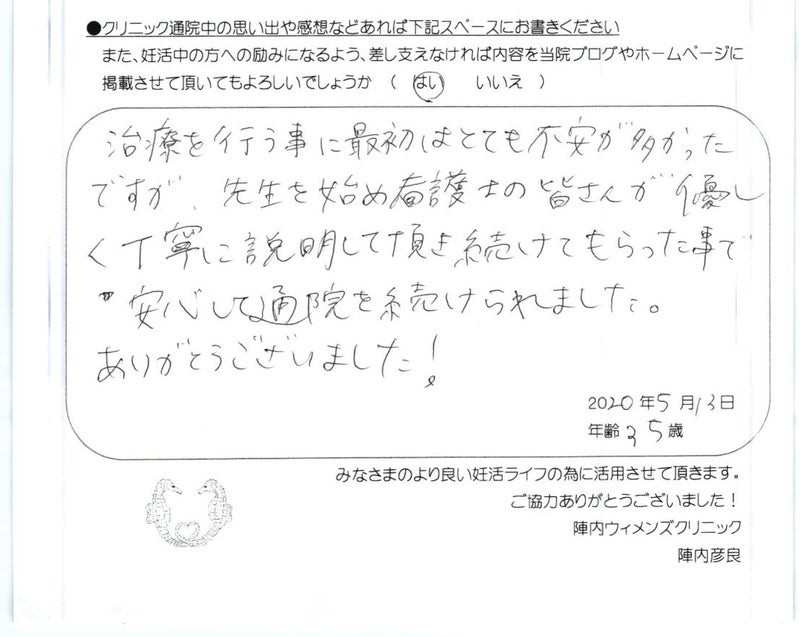 ●クリニック通院中の思い出や感想などあれば下記スペースにお書きください
また、妊活中の方への励みになるよう、差し支えなければ内容を当院ブログやホームページに
掲載させて頂いてもよろしいでしょうか （ はい いいえ ）
治療を行う事に最初はとても不安が多かった
ですが、先生を始め看護士の皆さんが優し
く丁寧に説明して頂き続けてもらった事で
安心して通院を続けられました。
ありがとうございました！
2020年5月13日
年齢35歳
みなさまのより良い妊活ライフの為に活用させて頂きます。
ご協力ありがとうございました！
陣内ウィメンズクリニック
陣内彦良